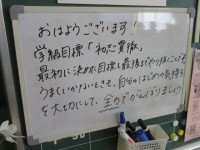 おはようございます!
学級目標「初志貫徹」
最初に決めた目標を最後までやりぬくことです
うまくいかないときも、自分のはじめの気持ち
を大切にして、全力でがんばりましょう